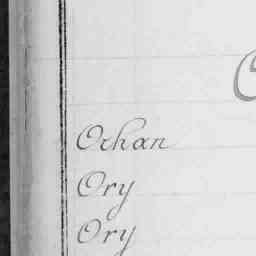 Orhan
Ory
Ory